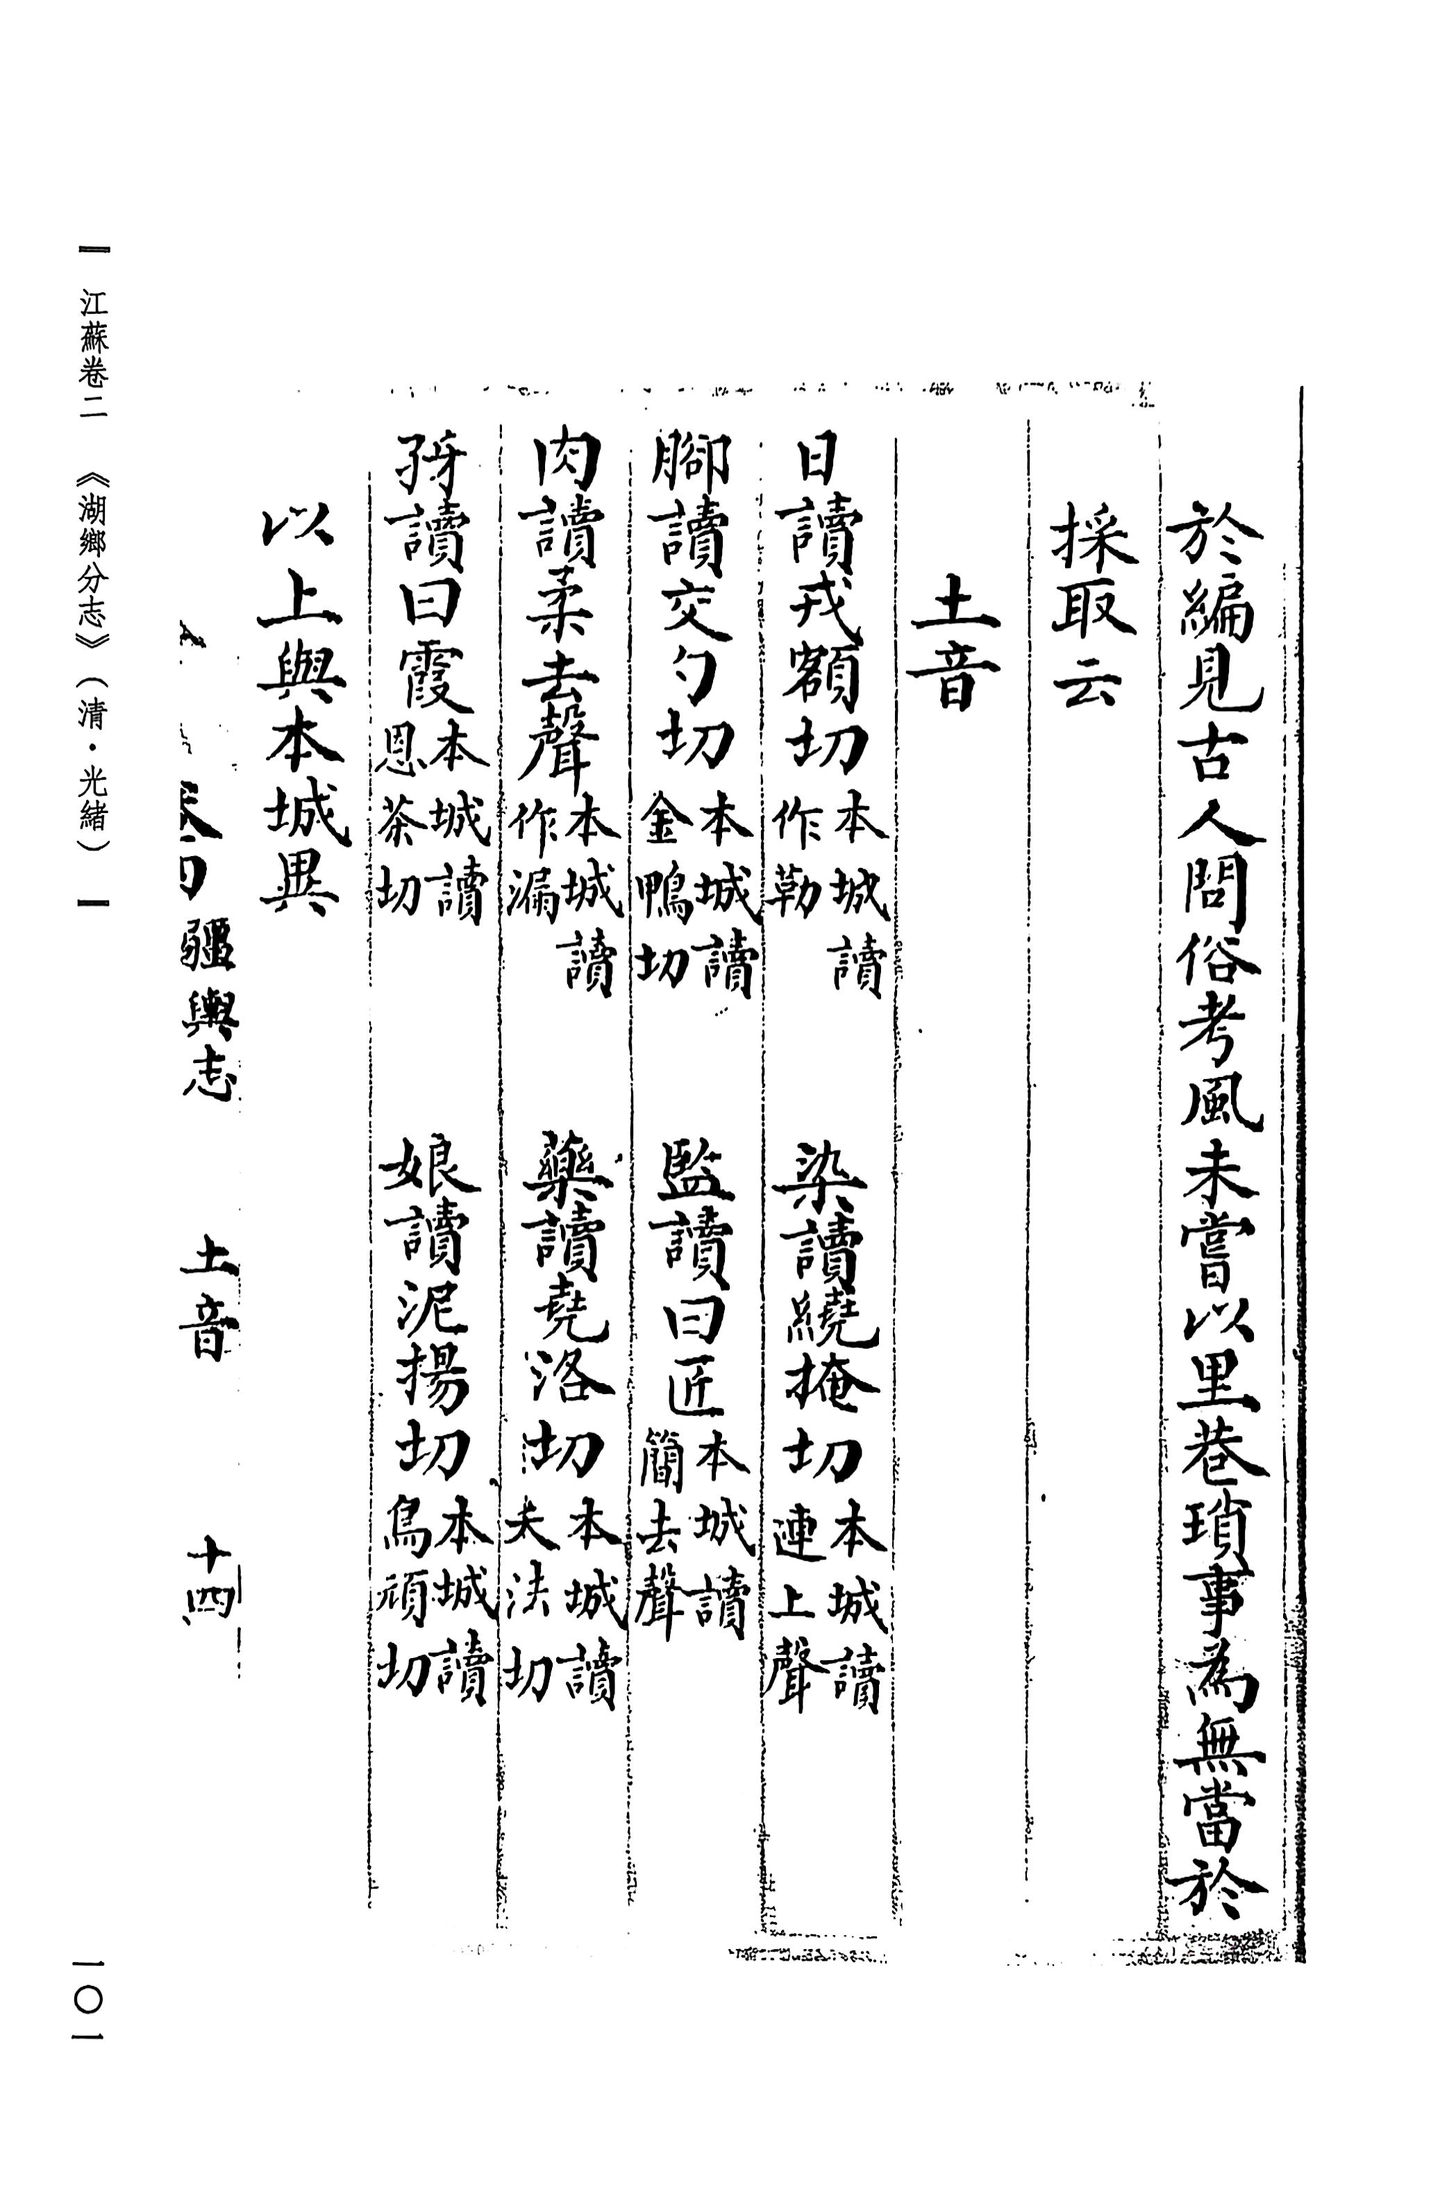 於編見古人問俗考風未嘗以里巷瑣事為無當於
採取云
土音
日讀戎額切本城讀作勒　染讀繞掩切本城讀連上聲
腳讀交勺切本城讀金鴨切　監讀曰匠本城讀簡去聲
肉讀柔去聲本城讀作漏　藥讀堯洛切本城讀夭法切
孖讀曰霞本城讀恩茶切　娘讀泥揚切本城讀鳥頑切
以上與本城異
疆輿志　土音　十四
江蘇卷二　《湖鄉分志》（清·光緒）
一〇一